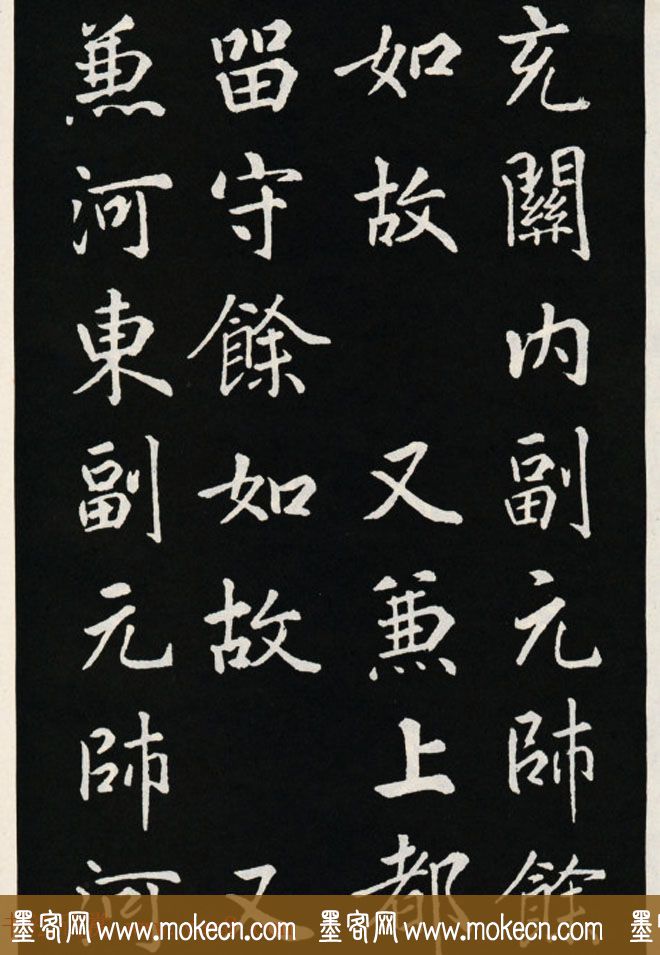 充關内副元帥餘
如故 又兼上都
留守餘如故 又
兼河東副元帥河
墨客网 www.mokecn.com 墨客网 www.mokecn.com